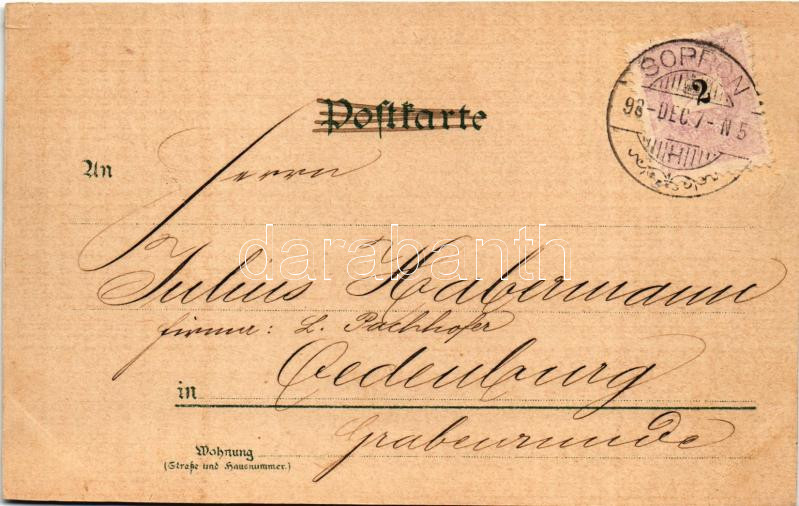 SOPRON
2
98-DEC.7-N5
Postkarte
An Herrn
Julius Habermann
Firma: L. Pachhofer
in Oedenburg
Grabenrunde
Wohnung
(Straße und Hausnummer.)
darabanth